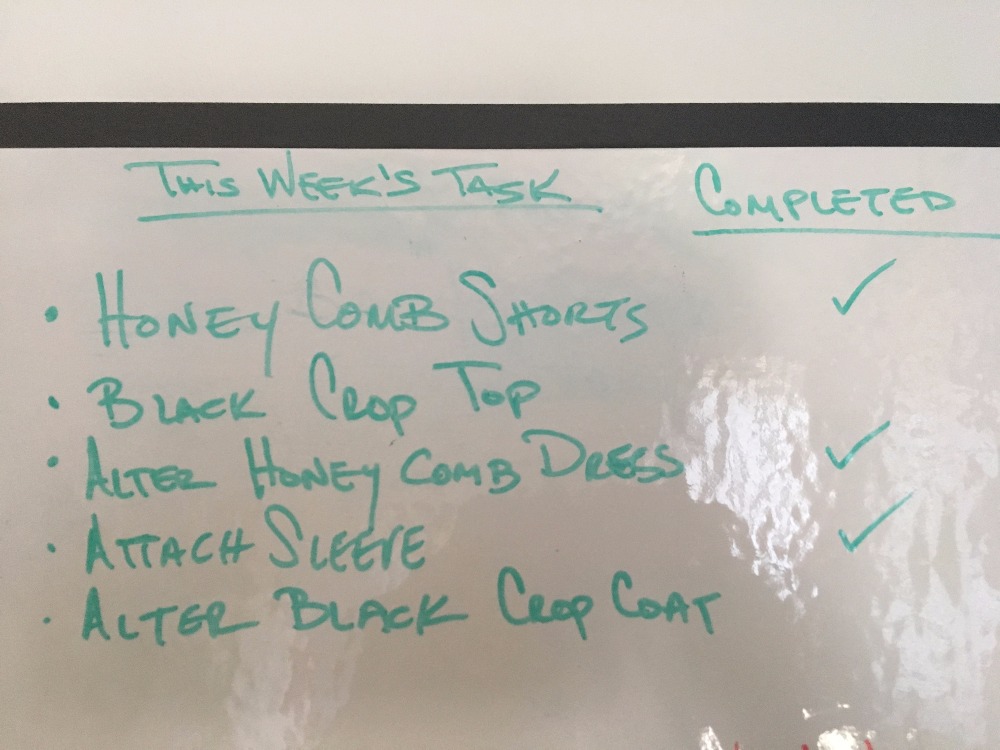 THIS WEEK'S TASK COMPLETED
• HONEY COMB SHORTS ✓
• BLACK CROP TOP
• ALTER HONEY COMB DRESS ✓
• ATTACH SLEEVE ✓
• ALTER BLACK CROP COAT